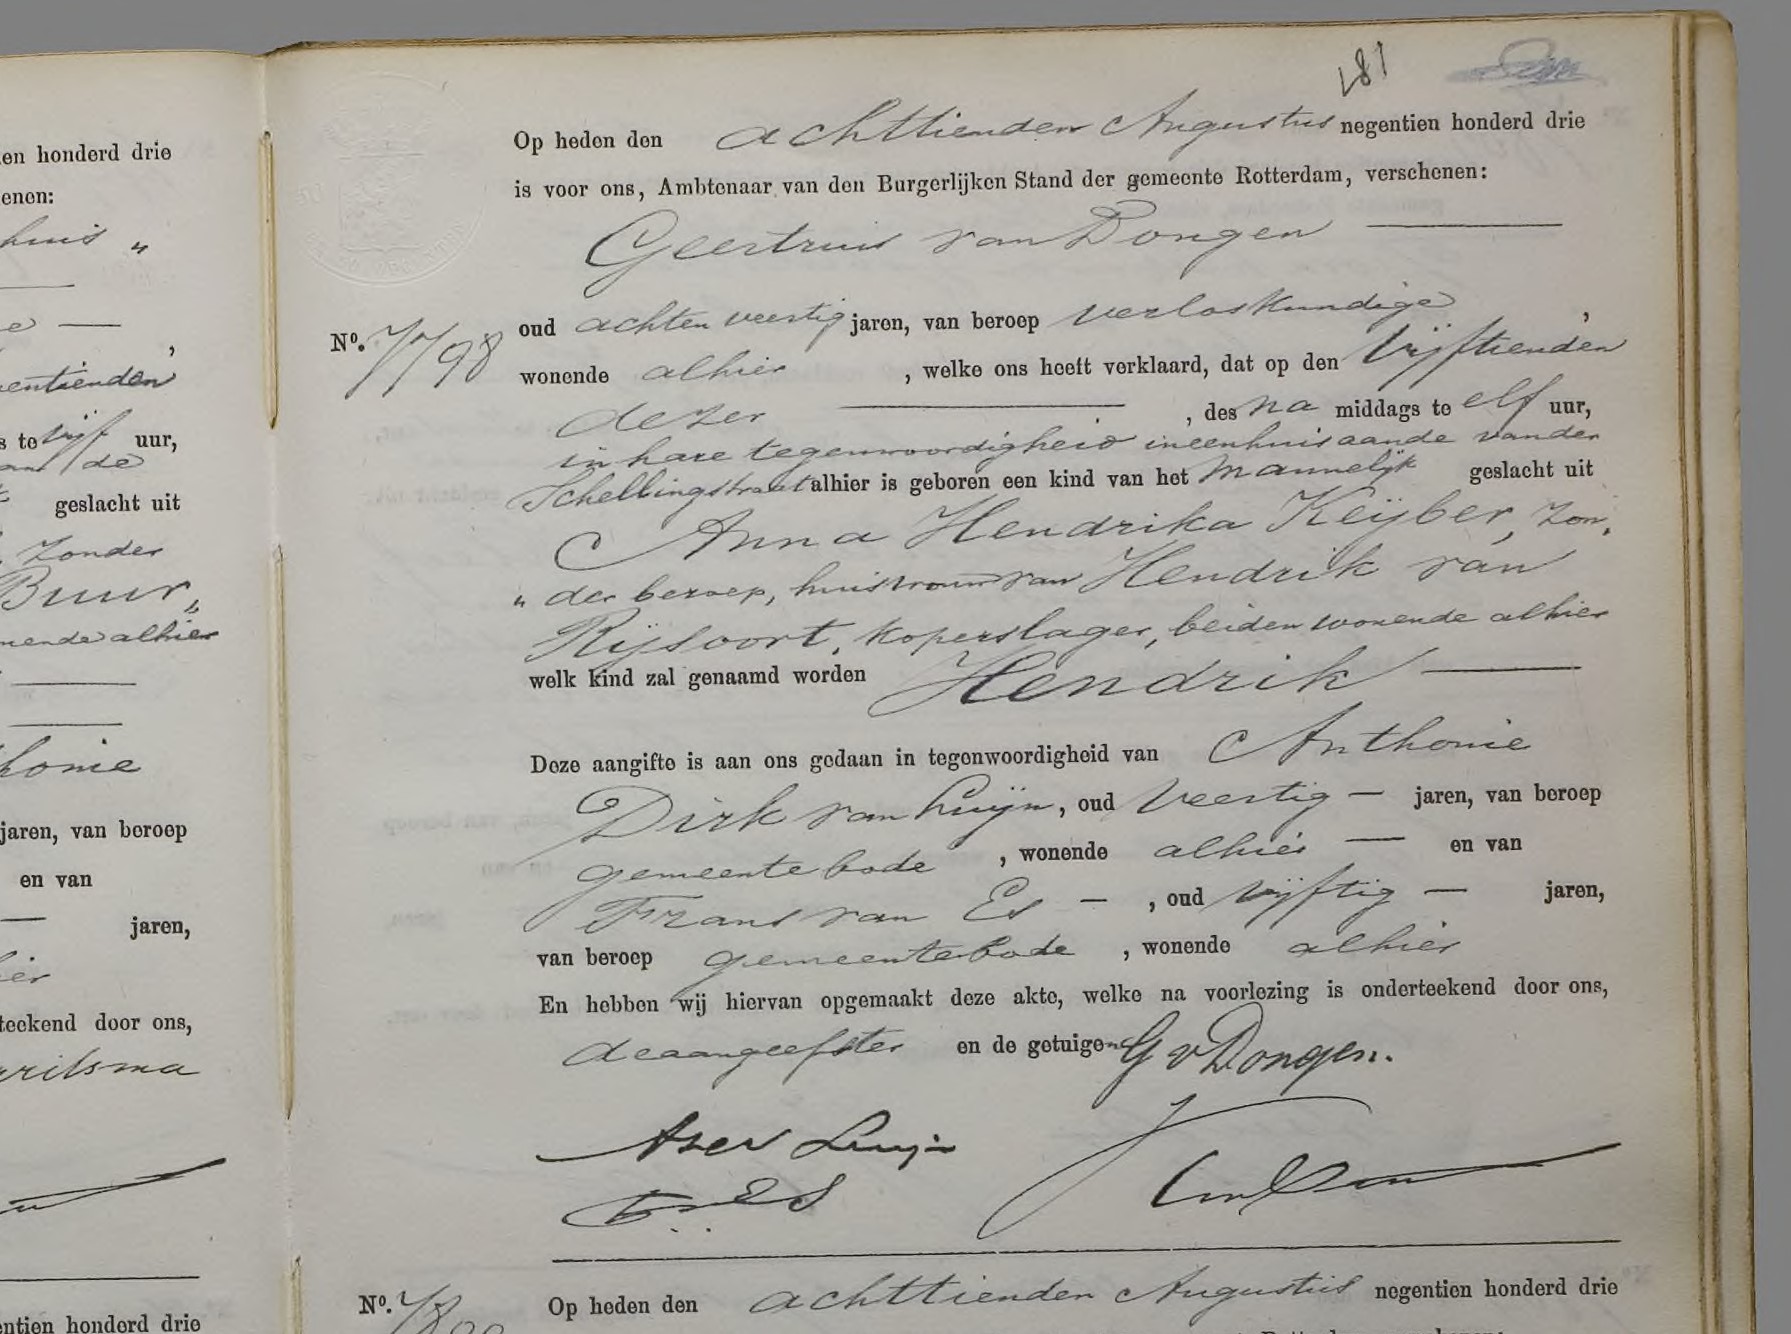 en honderd drie
enen:
huis "
entienden
s te vijf uur,
aan de
geslacht uit
zonder
Buur „
nende alhier
honie
jaren, van beroep
en van
jaren,
ier
teekend door ons,
ritsma
entien honderd drie
181
Op heden den achttienden Augustus negentien honderd drie
is voor ons, Ambtenaar van den Burgerlijken Stand der gemeente Rotterdam, verschenen:
Geertruis van Dongen
No. 7798
oud achten veertig jaren, van beroep verloskundige,
wonende alhier, welke ons heeft verklaard, dat op den vijftienden
dezer, des na middags te elf uur,
in hare tegenwoordigheid in een huis aan de van der
Schellingstraat alhier is geboren een kind van het mannelijk geslacht uit
Anna Hendrika Keijber, zon„
„ der beroep, huisvrouw van Hendrik van
Rijsoort, koperslager, beiden wonende alhier
welk kind zal genaamd worden Hendrik
Deze aangifte is aan ons gedaan in tegenwoordigheid van Anthonie
Dirk van Luijn, oud veertig jaren, van beroep
gemeentebode, wonende alhier en van
Frans van Es, oud vijftig jaren,
van beroep gemeentebode, wonende alhier
En hebben wij hiervan opgemaakt deze akte, welke na voorlezing is onderteekend door ons,
de aangeefster en de getuigen G v Dongen.
ADev Luijn
FvES
No. 78
Op heden den achttienden Augustus negentien honderd drie